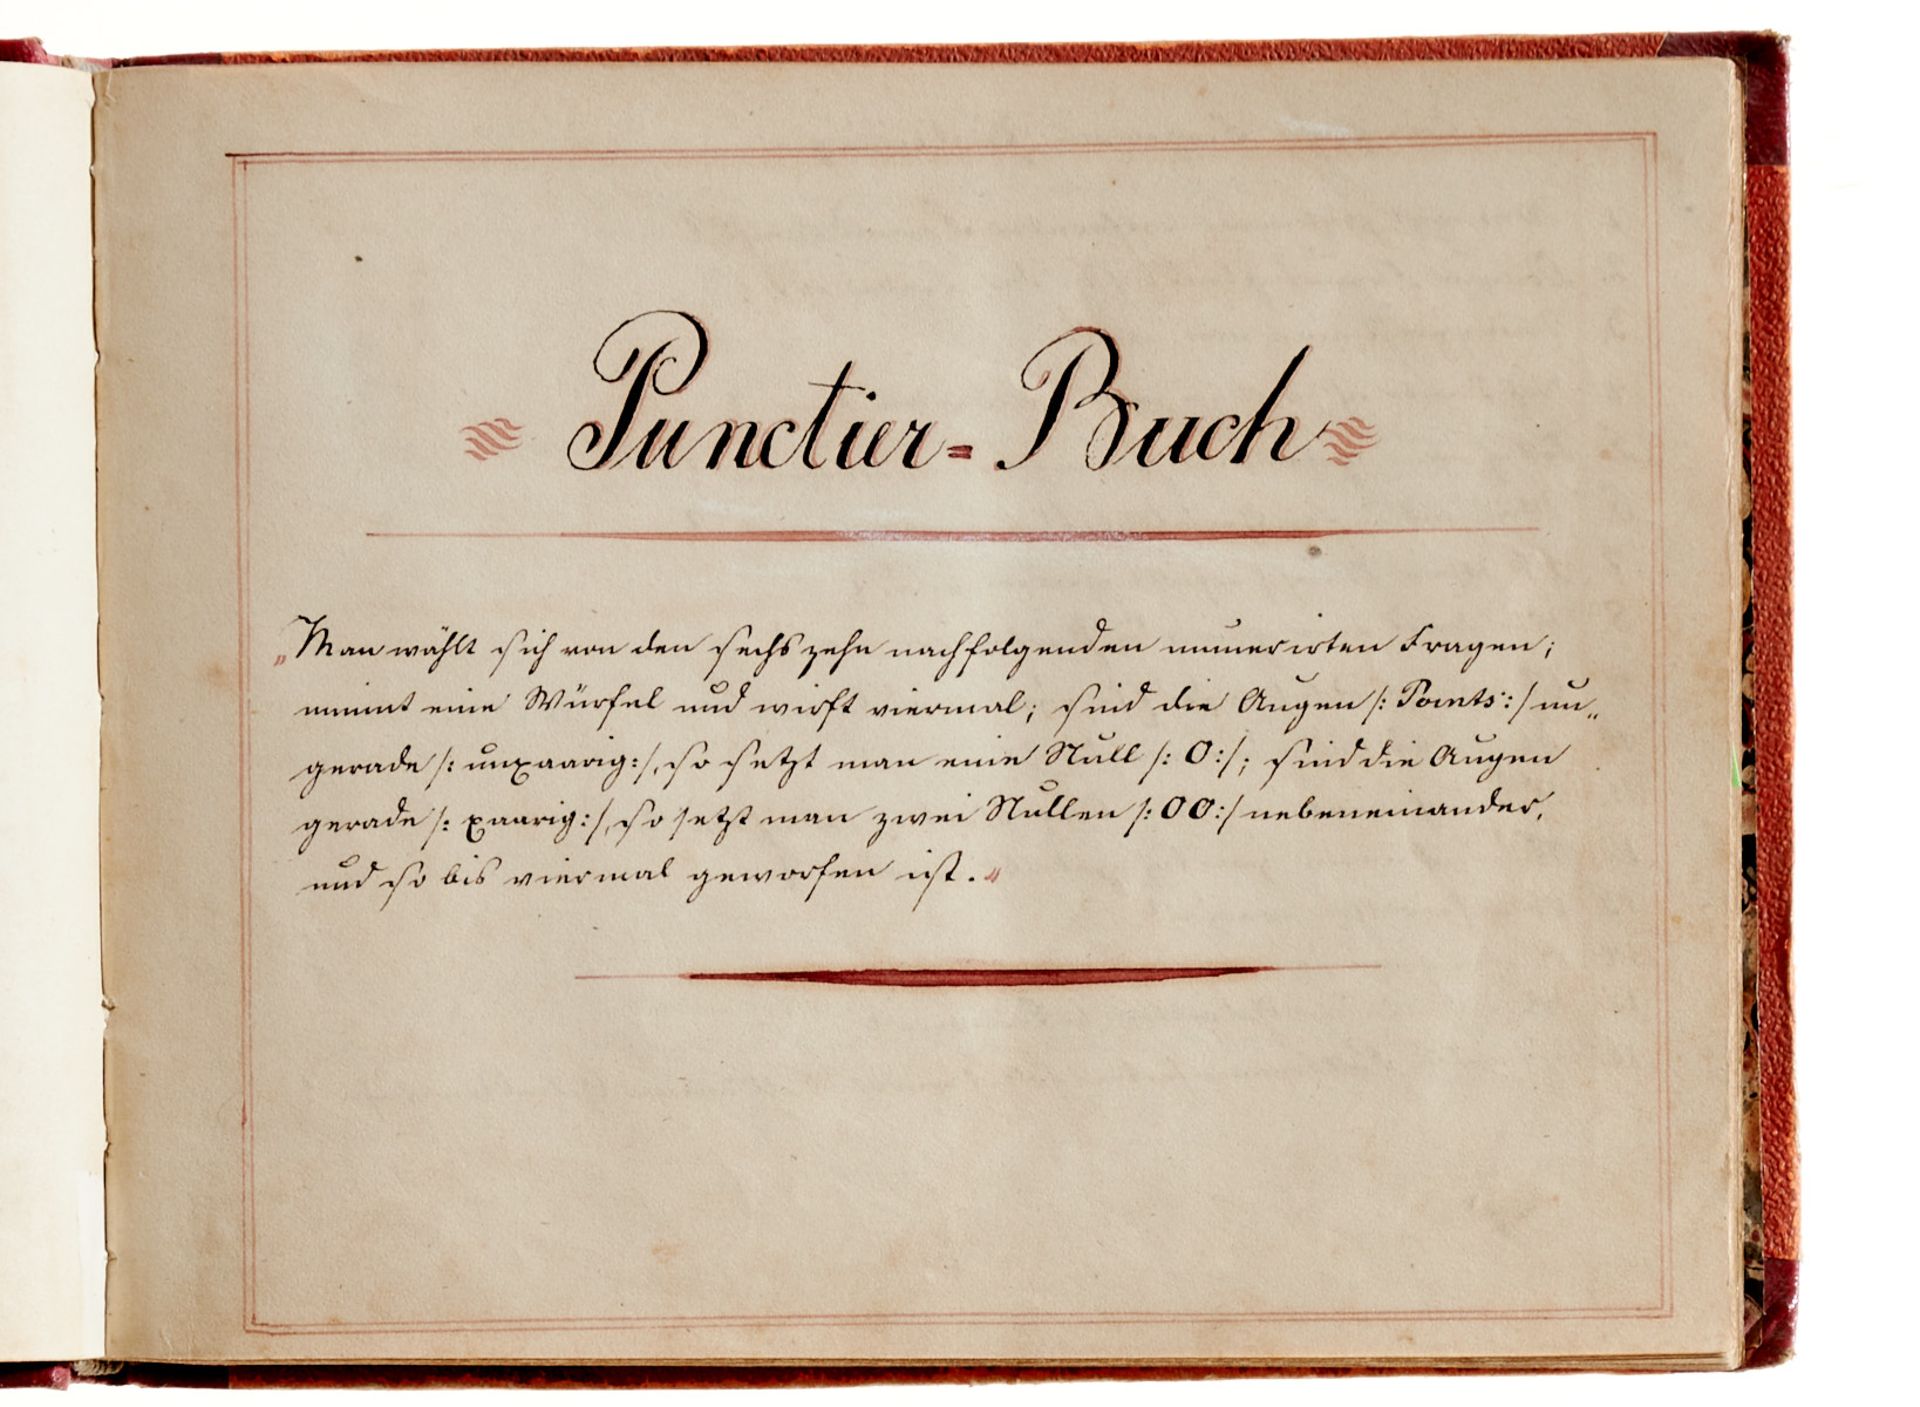 Punctier=Buch
„Man wählt sich von den sechszehn nachfolgenden numerirten Fragen;
nimmt eine Würfel und wirft viermal; sind die Augen /: Points :/ un„
gerade /: unpaarig :/, so setzt man eine Null /: 0 :/; sind die Augen
gerade /: paarig :/, so setzt man zwei Nullen /: 00 :/ nebeneinander,
und so bis viermal geworfen ist.“